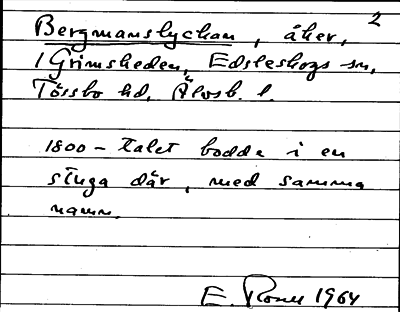 2
Bergmanslyckan, åker,
/ Grimsheden, Edsleskogs sn,
Tössbo hd, Älvsb. l.
1800-talet bodde i en
stuga där, med samma
namn.
E. 1964